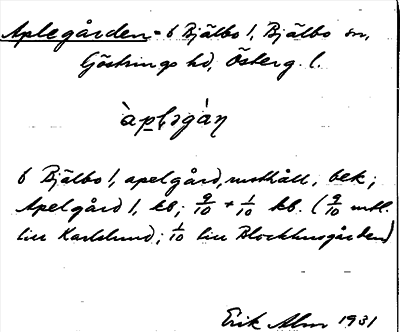 Aplegården = b Bjälbo 1, Bjälbo sn,
Göstrings hd, Österg. l.
b Bjälbo 1, apelgård, rusthåll, bek;
Apelgård 1, kb; 9/10 + 1/10 kb. (9/10 mtl.
liu Karlslund; 1/10 liu Blockhusgården)
Erik Alm 1931